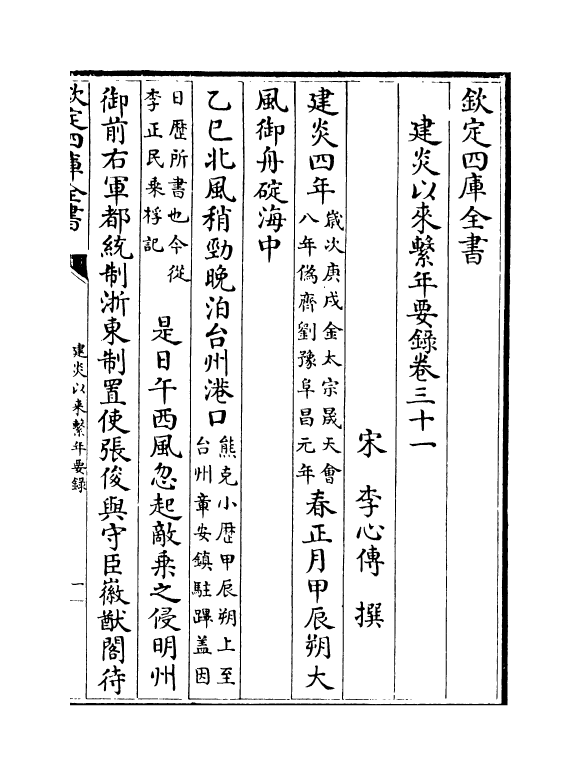 欽定四庫全書
建炎以來繫年要錄卷三十一
宋　李心傳　撰
建炎四年歲次庚戌金太宗晟天會八年偽齊劉豫阜昌元年春正月甲辰朔大
風御舟碇海中
乙巳北風稍勁晚泊台州港口熊克小歷甲辰朔上至台州章安鎮駐蹕盖因
日歷所書也今從李正民乘桴記是日午西風忽起敵乗之侵明州
御前右軍都統制浙東制置使張俊與守臣徽猷閣待
欽定四庫全書
建炎以來繫年要錄
一